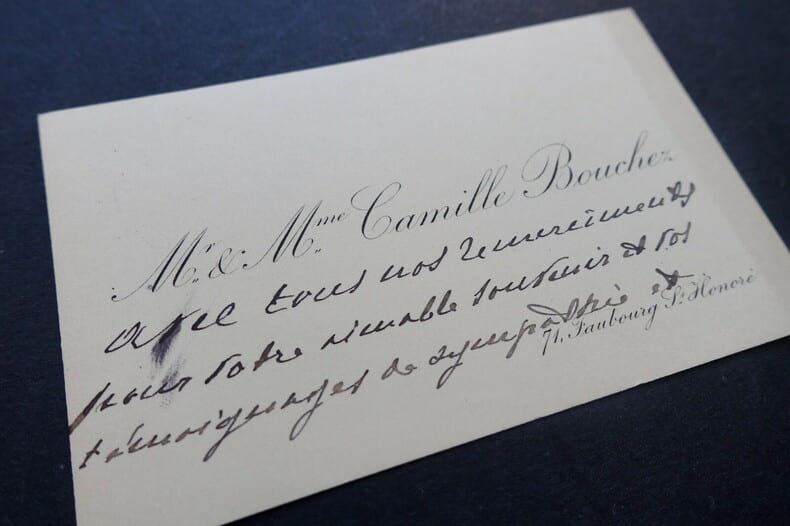 Mr. & Mme. Camille Bouchez
avec tous nos remerciements
pour votre aimable souvenir et vos
témoignages de sympathie et
71, Faubourg St. Honoré